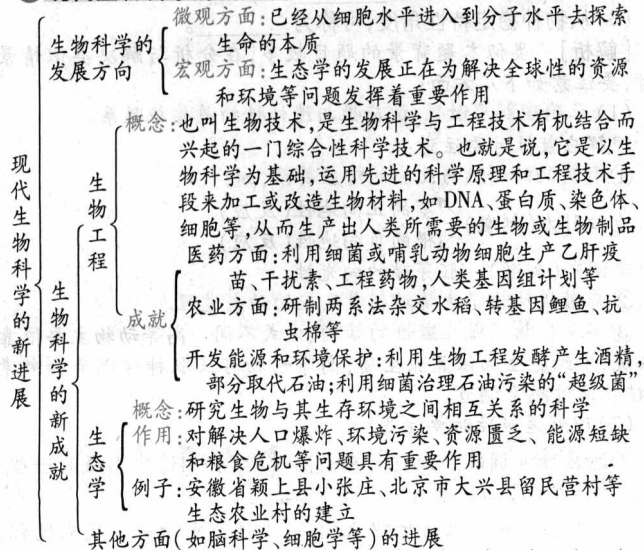 微观方面:已经从细胞水平进入到分子水平去探索
生命的本质
生物科学的
发展方向
宏观方面:生态学的发展正在为解决全球性的资源
和环境等问题发挥着重要作用
现代生物科学的新进展
生物科学的新成就
生物工程
概念:也叫生物技术,是生物科学与工程技术有机结合而
兴起的一门综合性科学技术。也就是说,它是以生
物科学为基础,运用先进的科学原理和工程技术手
段来加工或改造生物材料,如DNA、蛋白质、染色体、
细胞等,从而生产出人类所需要的生物或生物制品
成就
医药方面:利用细菌或哺乳动物细胞生产乙肝疫
苗、干扰素、工程药物,人类基因组计划等
农业方面:研制两系法杂交水稻、转基因鲤鱼、抗
虫棉等
开发能源和环境保护:利用生物工程发酵产生酒精,
部分取代石油;利用细菌治理石油污染的“超级菌”
生态学
概念:研究生物与其生存环境之间相互关系的科学
作用:对解决人口爆炸、环境污染、资源匮乏、能源短缺
和粮食危机等问题具有重要作用
例子:安徽省颍上县小张庄、北京市大兴县留民营村等
生态农业村的建立
其他方面(如脑科学、细胞学等)的进展